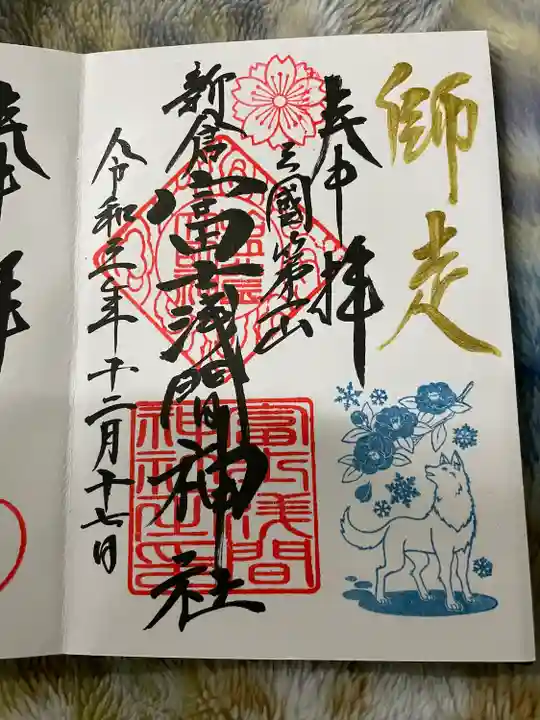 師走
奉拝
三國第一山
新倉富士浅間神社
令和三年十二月十七日
富士浅間
神社之印
奉拝